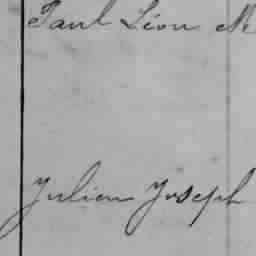 Paul Léon M
Julien Joseph